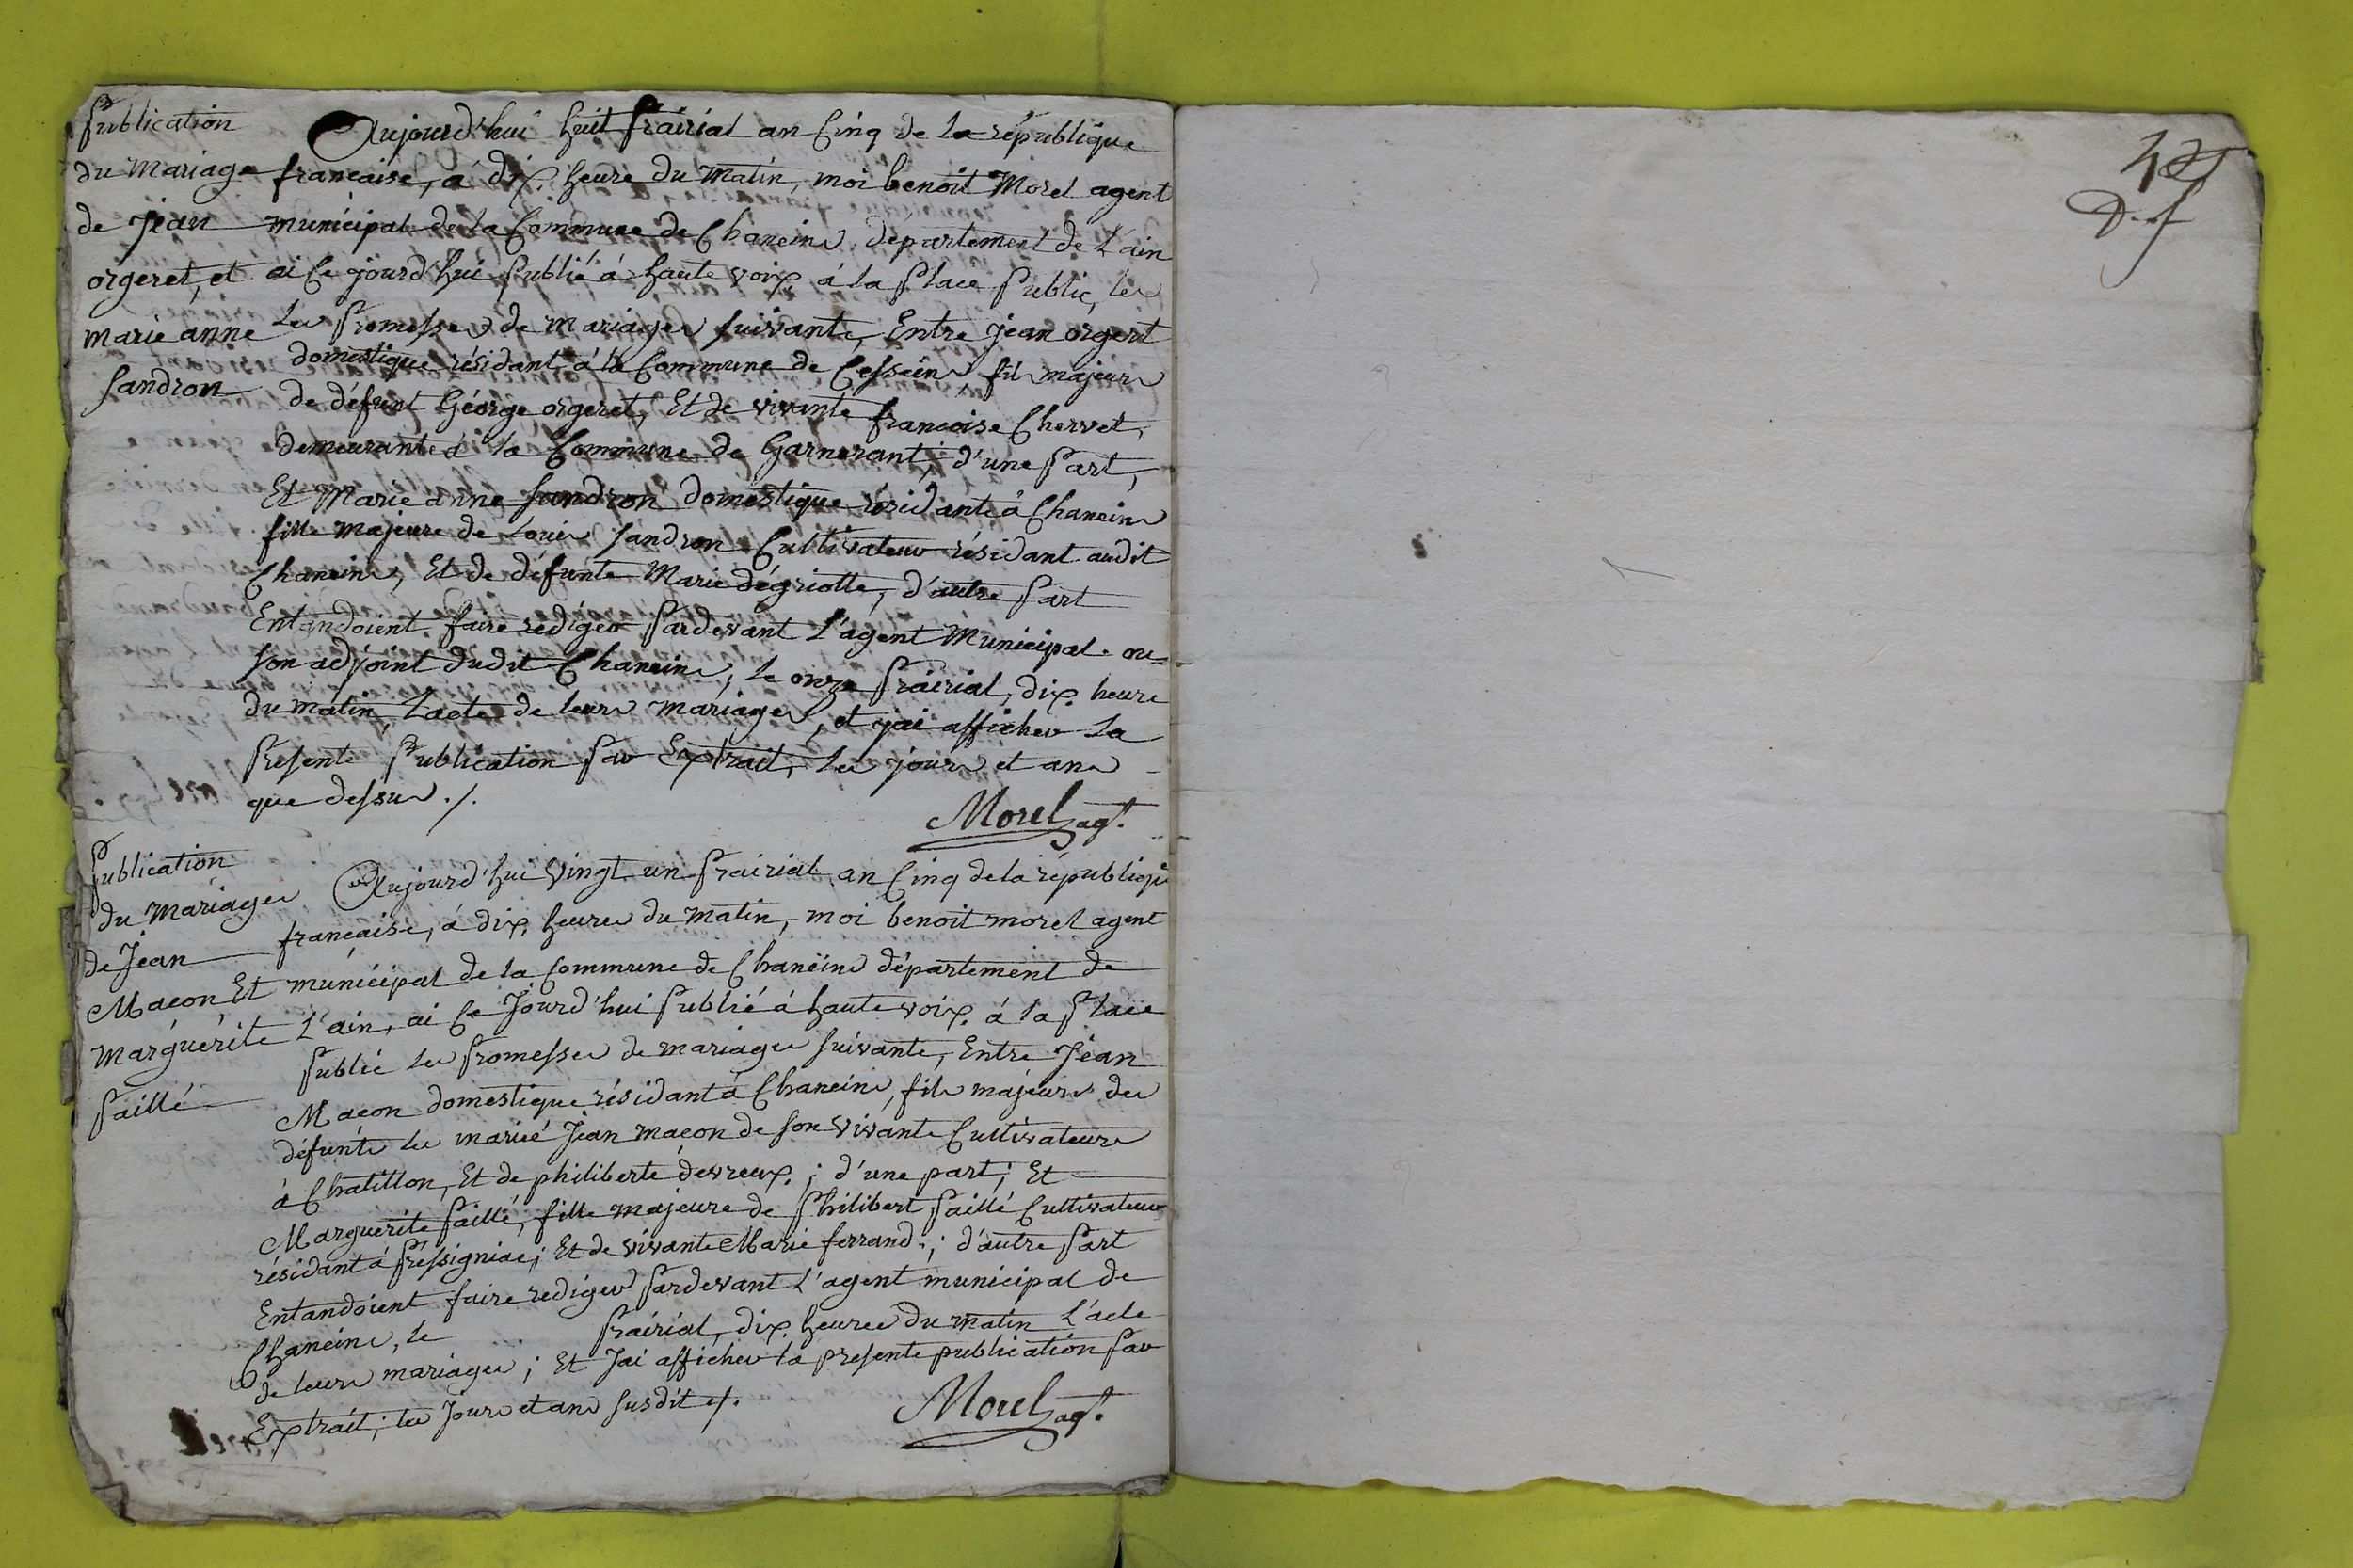 Publication
du mariage
de jean
orgeret, et
marie anne
sandron
Aujourd'hui huit prairial an Cinq de la république
francaise, à dix heure du matin, moi benoit Morel agent
municipal de la Commune de Chaneins, département de L'ain
ai Ce jourd'hui publié à haute voix à la place public, les
les promesses de mariages suivante, Entre jean orgeret
domestique résidant à la Commune de Cesseins, fils majeurs
de défunt Géorge orgeret, Et de vivante francoise Chervet,
demeurante à la Commune de Garnerant, d'une part,
Et Marie anne sandron domestique résidante à Chaneins
fille majeure de Louis sandron Cultivateur résidant audit
Chaneins, Et de défunte Marie dégriotte, d'autre part
Entandoient faire rédiger pardevant L'agent Municipal ou
son adjoint dudit Chaneins, le onze prairial, dix heure
du matin, L'acte de leurs mariages, et j'ai afficher la
presente publication par Extrait, les jours et ans
que dessus ./.
Morel agt.
Publication
du mariages
de Jean
Macon, Et
Marguérite
paillé
Aujourd'hui Vingt un prairial an Cinq de la républiqu
francaise, à dix heures du matin, moi benoit morel agent
municipal de la Commune de Chaneins département de
L'ain, ai Ce Jourd'hui publié à haute voix à la place
public les promesses de mariages suivante, Entre Jean
Macon domestique résidant à Chaneins, fils majeurs des
défunte les marié Jean macon de son vivante Cultivateurs
à Chatillon, Et de philiberte devreux ; d'une part ; Et
Marguerite paillé, fille majeure de philibert paillé Cultivateur
résidant à préssigniac ; Et de vivante Marie ferrand ; d'autre part
Entandoient faire rediger pardevant L'agent municipal de
Chaneins, le prairial, dix heures du matin L'acte
de leurs mariages ; Et J'ai afficher la presente publication par
Extrait ; les Jours et ans susdit ./.
Morel agt.